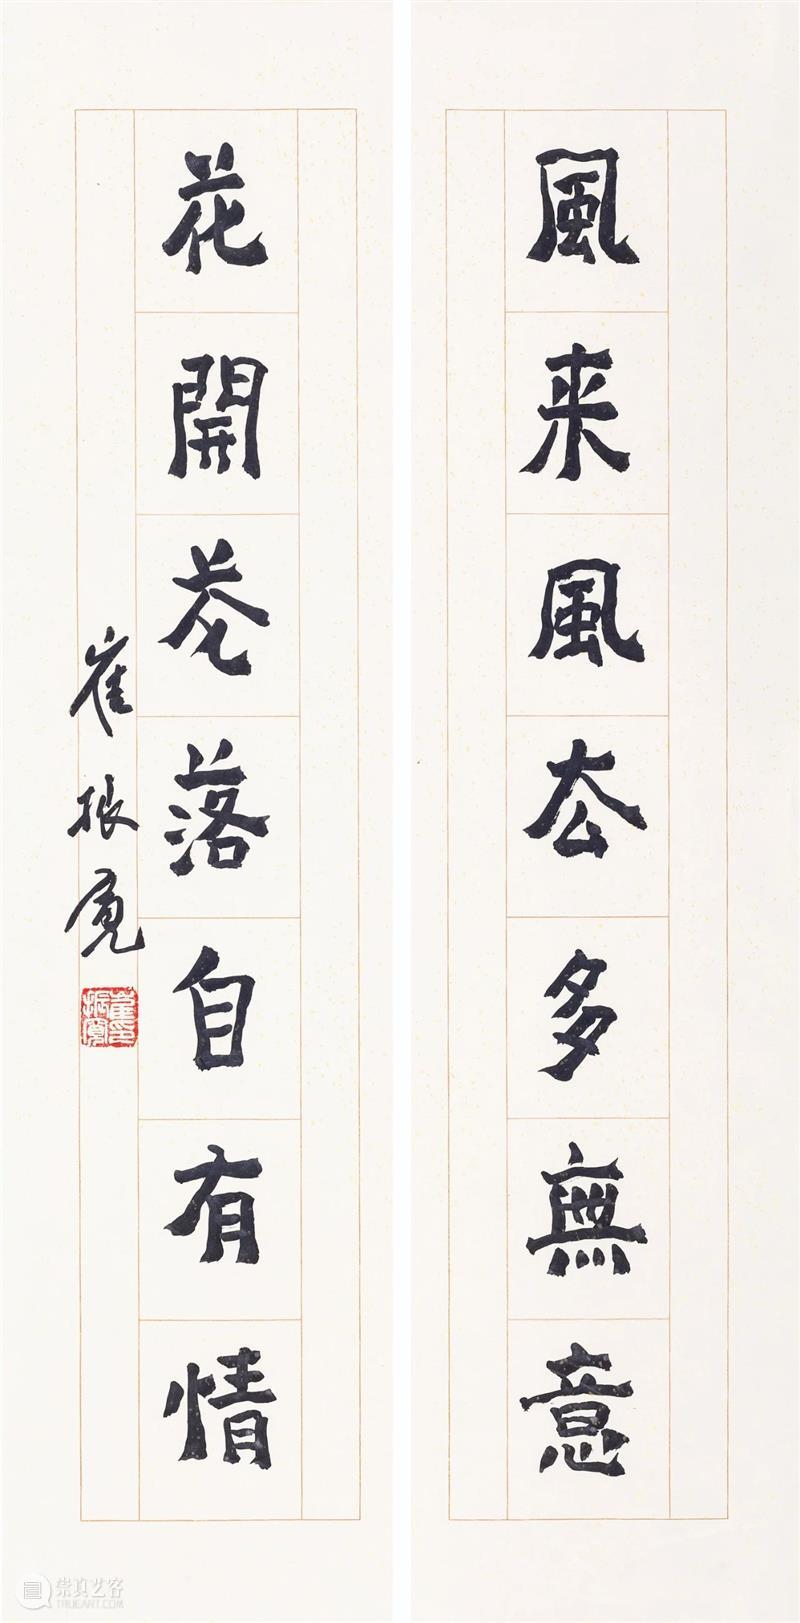 風来風厺多無意
花開花落自有情
崔振寬
崔振寬印
崇真艺客
TRUEART.COM